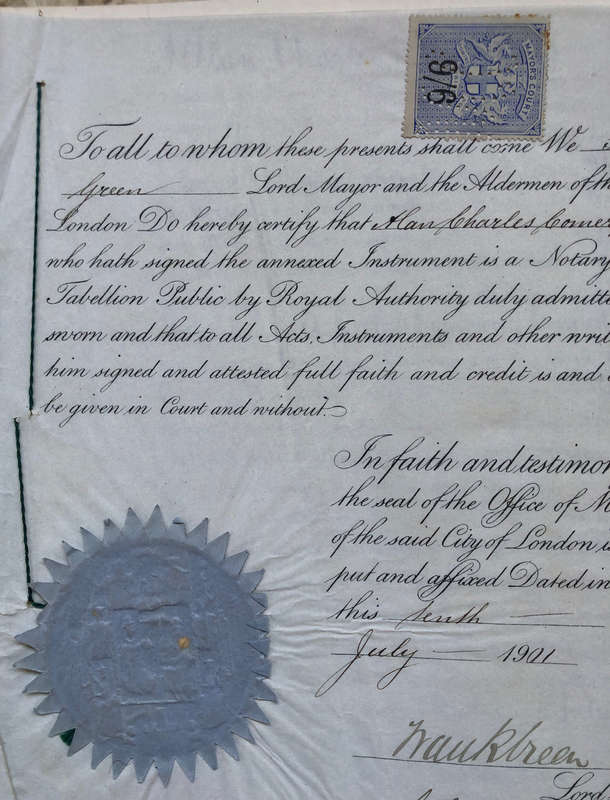 MAYOR'S COURT
9/6
To all to whom these presents shall come We
Green Lord Mayor and the Aldermen of th
London Do hereby certify that Alan Charles Comer
who hath signed the annexed Instrument is a Notary
Tabellion Public by Royal Authority duly admitt
sworn and that to all Acts, Instruments and other writ
him signed and attested full faith and credit is and
be given in Court and without.
In faith and testimon
the seal of the Office of M
of the said City of London
put and affixed Dated in
this tenth
July 1901
Frank Green
Lord